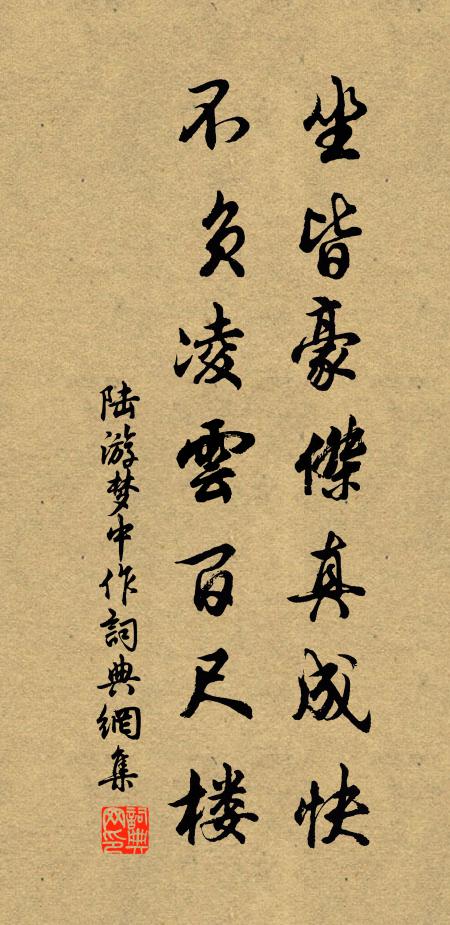 坐皆豪傑真成快
不负凌雲百尺楼
陆游梦中作詞典網集
詞典網印